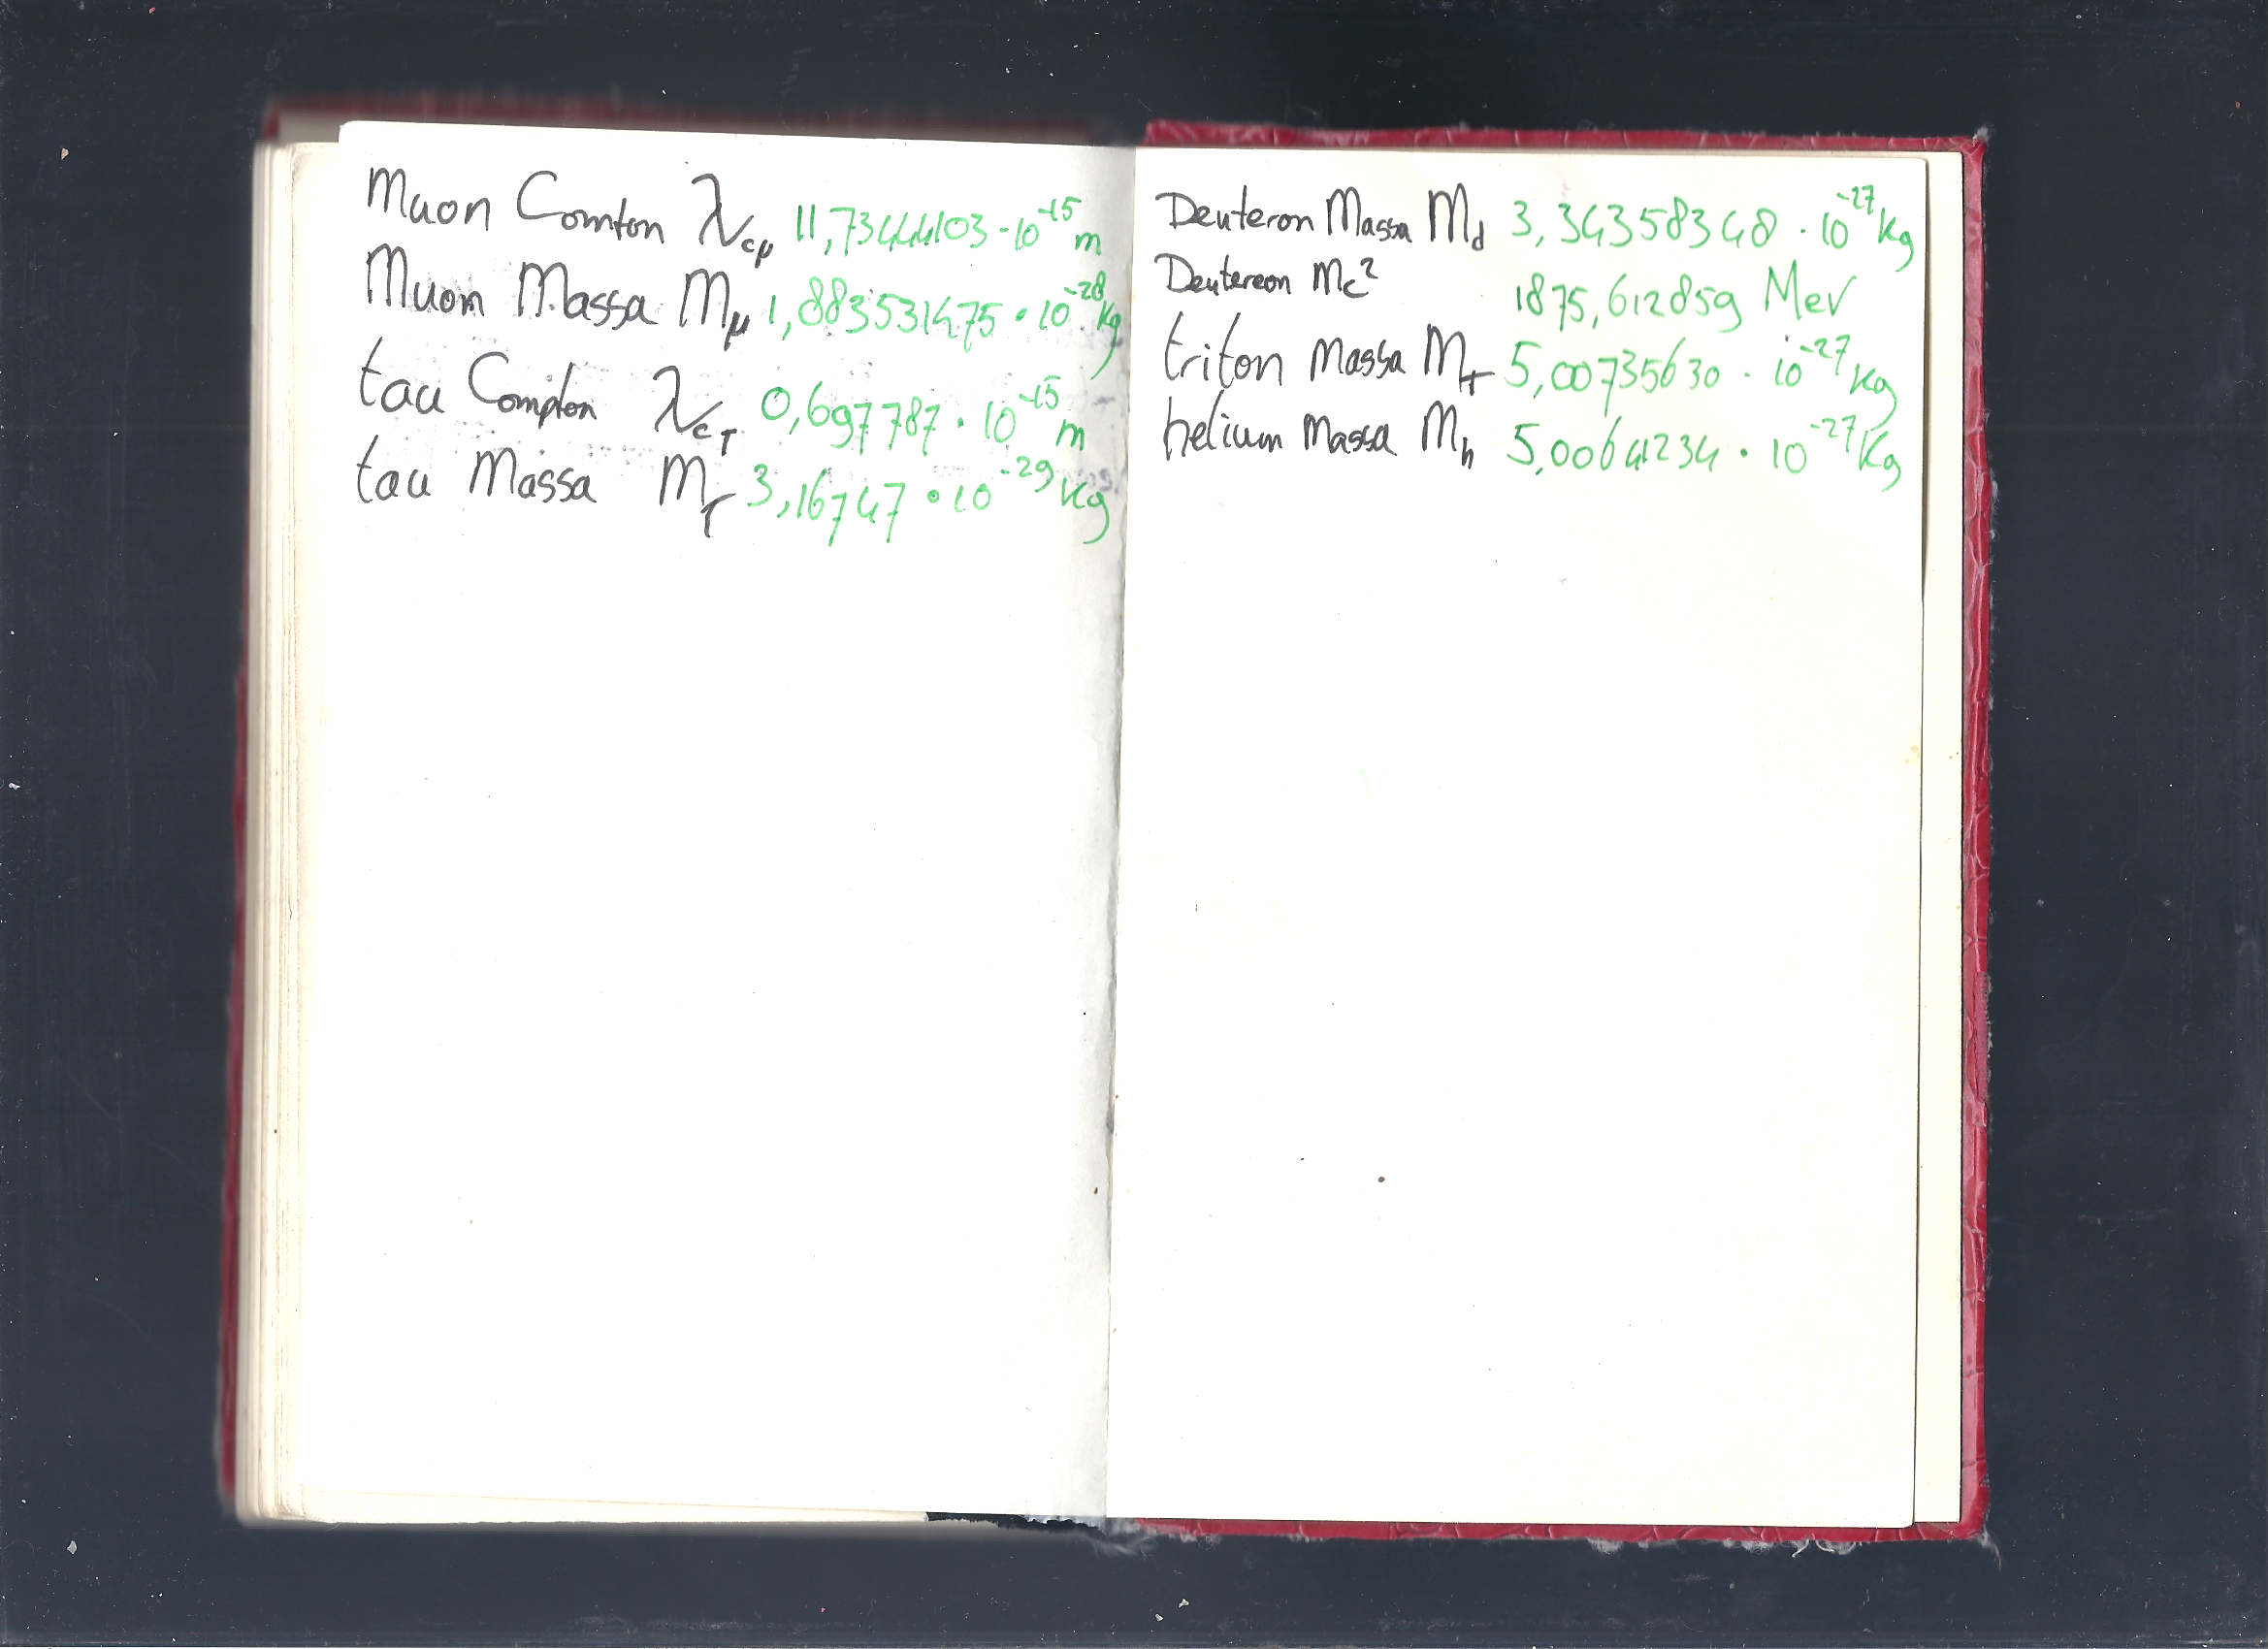 Muon Comton λcμ 11,73444103 · 10⁻¹⁵ m
Muon Massa Mμ 1,883531475 · 10⁻²⁸ kg
tau Compton λcτ 0,697787 · 10⁻¹⁵ m
tau Massa Mτ 3,16747 · 10⁻²⁹ kg
Deuteron Massa Md 3,34358348 · 10⁻²⁷ kg
Deutereon Mc²
1875,612859 Mev
triton Massa MT 5,00735630 · 10⁻²⁷ kg
helium Massa Mh 5,00641234 · 10⁻²⁷ kg